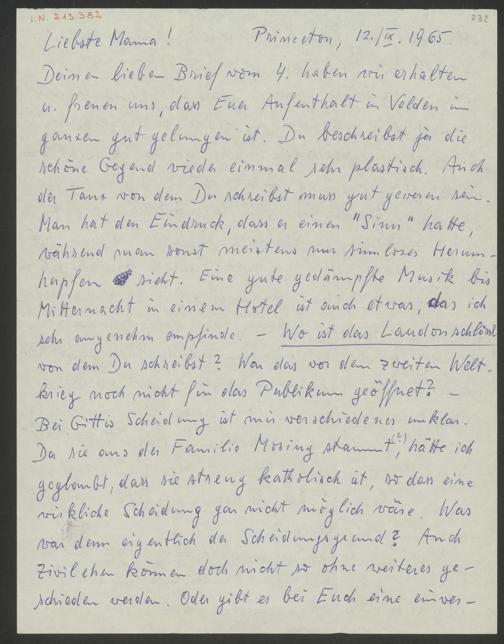 I.N. 213.382
232
Liebste Mama! Princeton, 12./IX. 1965.
Deinen lieben Brief vom 4. haben wir erhalten
u. freuen uns, dass Euer Aufenthalt in Velden im
ganzen gut gelungen ist. Du beschreibst ja die
schöne Gegend wieder einmal sehr plastisch. Auch
der Tanz von dem Du schreibst muss gut gewesen sein.
Man hat den Eindruck, dass er einen "Sinn" hatte,
während man sonst meistens nur sinnloses Herum-
hupfen sieht. Eine gute gedämpfte Musik bis
Mitternacht in einem Hotel ist auch etwas, das ich
sehr angenehm empfinde. – Wo ist das Laudonschlössl
von dem Du schreibst? War das vor dem zweiten Welt-
krieg noch nicht für das Publikum geöffnet? –
Bei Gittis Scheidung ist mir verschiedenes unklar.
Da sie aus der Familie Mosing stammt(?), hätte ich
geglaubt, dass sie streng katholisch ist, so dass eine
wirkliche Scheidung gar nicht möglich wäre. Was
war denn eigentlich der Scheidungsgrund? Auch
Zivilehen können doch nicht so ohne weiteres ge-
schieden werden. Oder gibt es bei Euch eine einver-